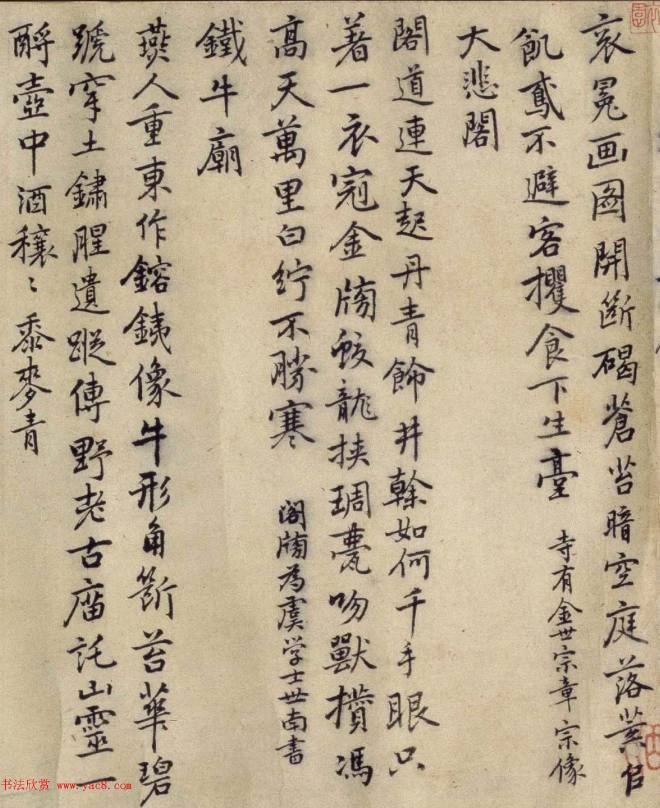 衮冕画图開断碣蒼苔暗空庭落葉
飢鳶不避客攫食下生臺 寺有金世宗章宗像
大悲閣
閣道連天起丹青飾井榦如何千手眼只
著一衣冠金牓蛟龍挟琱甍吻獸攢馮
高天萬里白紵不勝寒 閣牓為虞学士世南書
鐵牛廟
燕人重東作鎔銕像牛形角断苔華碧
蹏穿土鏽腥遺蹤傳野老古廟託山靈一
酹壺中酒穰〻黍麥青
书法欣赏 www.yac8.com